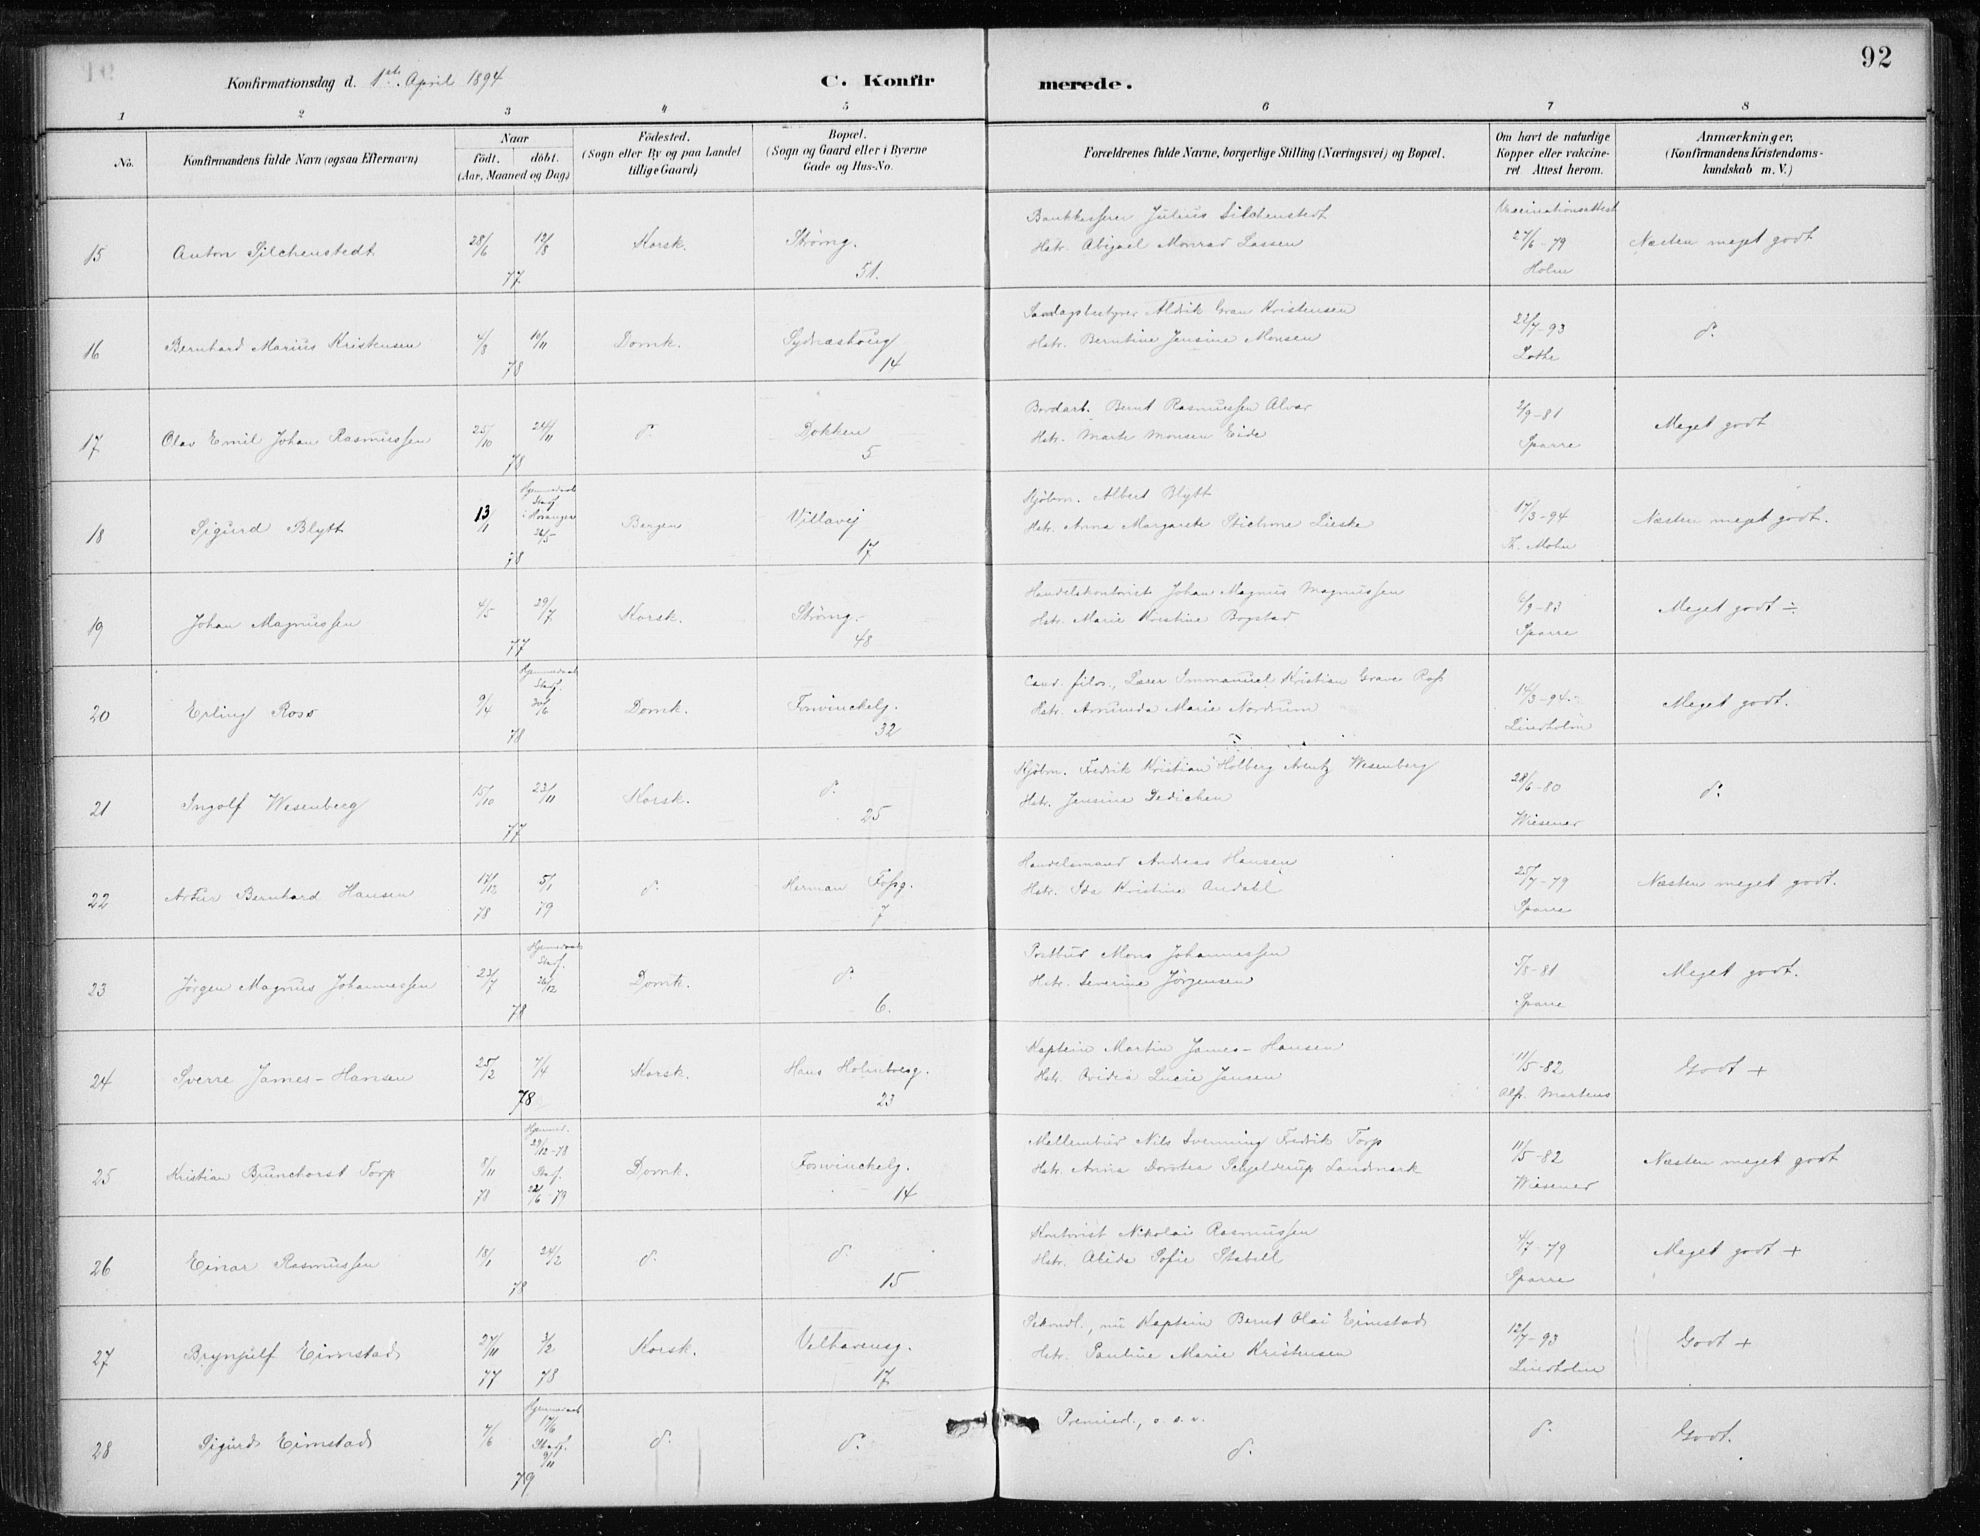 92
Konfirmationsdag d. 1ste April 1894
C. Konfirmerede.
1 2 3 4 5 6 7 8
No.
Konfirmandens fulde Navn (ogsaa Efternavn)
Naar
født. døbt.
(Aar, Maaned og Dag)
Fødested.
(Sogn eller By og paa Landet
tillige Gaard)
Bopæl.
(Sogn og Gaard eller i Byerne
Gade og Hus-No.
Forældrenes fulde Navne, borgerlige Stilling (Næringsvei) og Bopæl.
Om havt de naturlige
Kopper eller vakcine-
ret. Attest herom.
Anmærkninger.
(Konfirmandens Kristendoms-
kundskab m. V.)
15 Anton Silchenstedt 28/6 12/8 77 Korsk. Strømg. 51.
Bankkasserer Julius Silchenstedt
Hstr. Abigael Monrad Lassen
Vaccinationsattest 27/6-79 Holm
Næsten meget godt
16 Bernhard Marius Kristensen 4/8 10/11 78 Domk. Sydnæshoug 14
Aldrik Gran Kristensen
Hstr. Berntine Jensine Monsen
22/7-93 Lothe
d.
17 Olav Emil Johan Rasmussen 25/10 24/11 78 d. Dokken 5
Bordarb. Bernt Rasmussen Alvær
Hstr. Marte Monsen Eide
2/9-81 Sparre
Meget godt
18 Sigurd Blytt 13/1 Hjemmedøbt Stadf. 26/5 78 Bergen Villavej 17
Kjøbm. Albert Blytt
Hstr. Anna Margarete Lieske
17/3-94 Th. Mohn
Næsten meget godt.
19 Johan Magnussen 4/5 29/7 77 Korsk. Strømg. 48
Handelskontorist Johan Magnus Magnussen
Hstr. Marie Kristine Bogstad
6/9-83 Sparre
Meget godt ÷
20 Erling Ross 9/4 Hjemmedøbt Stadf. 30/6 78 Domk. Fosvinckelg. 32
Cand. filos., Lærer Immanuel Kristian Grave Ross
Hstr. Amunda Marie Nordrum
14/3-94. Lindholm
Meget godt.
21 Ingolf Wesenberg 15/10 23/11 77 Korsk. d. 25
Kjøbm. Fredrik Kristian Holberg Arentz Wesenberg
Hstr. Jensine Dedichen
28/6-80 Wiesener
d.
22 Artur Bernhard Hansen 17/12 78 5/1 79 d. Herman Fossg. 7
Handelsmand Andreas Hansen
Hstr. Ida Kristine Andahl
25/7-79 Sparre
Næsten meget godt.
23 Jørgen Magnus Johannessen 23/7 Hjemmedøbt Stadf. 26/12 78 Domk. d. 6.
Postbud Mons Johannessen
Hstr. Severine Jørgensen
5/8-81 Sparre
Meget godt.
24 Sverre James-Hansen 25/2 7/4 78 Korsk. Hans Holmboesg. 23
Kaptein Martin James-Hansen
Hstr. Ovidia Lucie Jensen
11/5-82 Alfr. Martens
Godt +
25 Kristian Brunchorst Torp 8/11 78 Hjemmed. 29/12-78 Stadf. 22/6-79 Domk. Fosvinckelg. 14
Mellembud Nils Svenning Fredrik Torp
Hstr. Anna Dorotea Schjelderup Landmark
11/5-82 Wiesener
Næsten meget godt
26 Einar Rasmussen 18/1 24/2 78 d. d. 15
Kontorist Nikolai Rasmussen
Hstr. Alida Sofie Stabell
4/7-79 Sparre
Meget godt +
27 Brynjulf Eimstad 27/11 77 3/2 78 Korsk. Velhavensg. 17
Sekondl., nu Kaptein Bernt Olai Eimstad
Hstr. Pauline Marie Kristensen
12/7-93 Lindholm
Godt +
28 Sigurd Eimstad 7/6 Hjemmedøbt 17/6 Stadf. 9/11 79 d. d.
Premierl., o. s. v.
d.
d.
Godt.